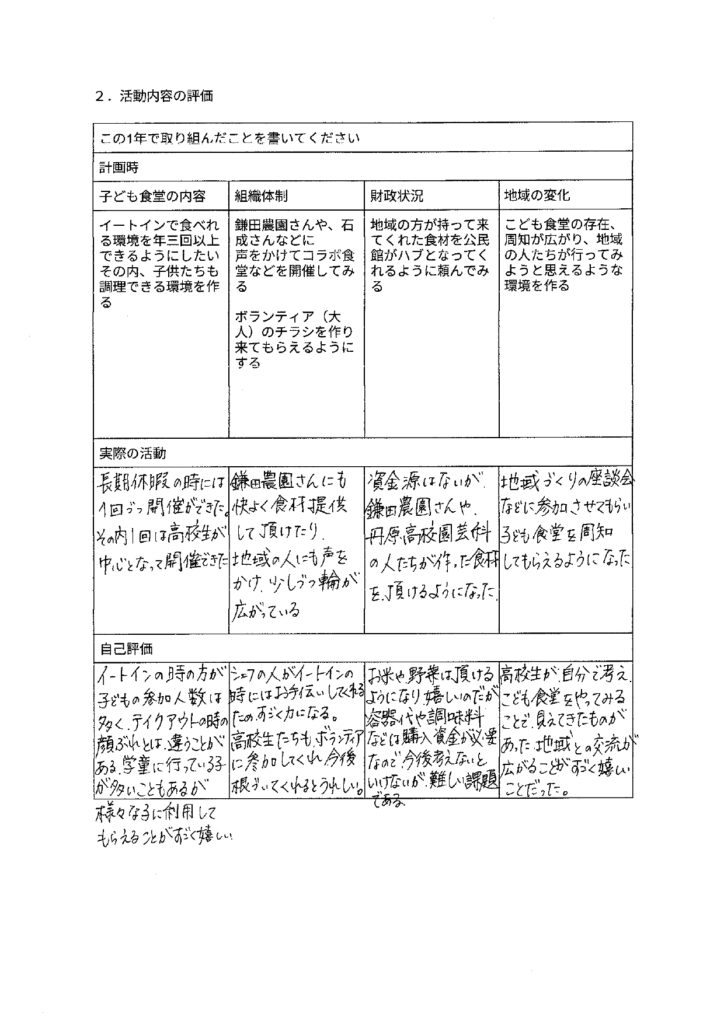 2．活動内容の評価
この1年で取り組んだことを書いてください
計画時
子ども食堂の内容
組織体制
財政状況
地域の変化
イートインで食べれ
る環境を年三回以上
できるようにしたい
その内、子供たちも
調理できる環境を作
る
鎌田農園さんや、石
成さんなどに
声をかけてコラボ食
堂などを開催してみ
る
ボランティア（大
人）のチラシを作り
来てもらえるように
する
地域の方が持って来
てくれた食材を公民
館がハブとなってく
れるように頼んでみ
る
こども食堂の存在、
周知が広がり、地域
の人たちが行ってみ
ようと思えるような
環境を作る
実際の活動
長期休暇の時には
1回づつ開催ができた。
その内1回は高校生が
中心となって開催できた
鎌田農園さんにも
快よく食材提供
して頂けたり、
地域の人にも声を
かけ、少しづつ輪が
広がっている
資金源はないが、
鎌田農園さんや、
丹原高校園芸科
の人たちが作った食材
を、頂けるようになった。
地域づくりの座談会
などに参加させてもらい
子ども食堂を周知
してもらえるようになった
自己評価
イートインの時の方が
子どもの参加人数は
多く、テイクアウトの時の
顔ぶれとは、違うことが
ある。学童に行っている子
が多いこともあるが
様々な子に利用して
もらえることがすごく嬉しい
シェフの人がイートインの
時にはお手伝いしてくれる
ため、すごく力になる。
高校生たちも、ボランティア
に参加してくれ、今後
根づいてくれるとうれしい。
お米や野菜は頂ける
ようになり嬉しいのだが
容器代や調味料
などは購入資金が必要
なので、今後考えないと
いけないが、難しい課題
である
高校生が、自分で考え、
こども食堂をやってみる
ことで、見えてきたものが
あった。地域との交流が
広がることがすごく嬉しい
ことだった。